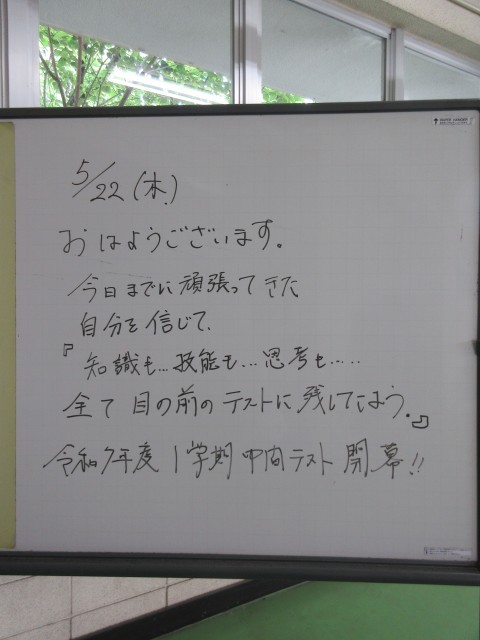 5/22(木)
おはようございます。
今日までに頑張ってきた
自分を信じて、
『知識も…技能も…思考も……
全て目の前のテストに残してこよう。』
令和7年度 1学期中間テスト開幕!!